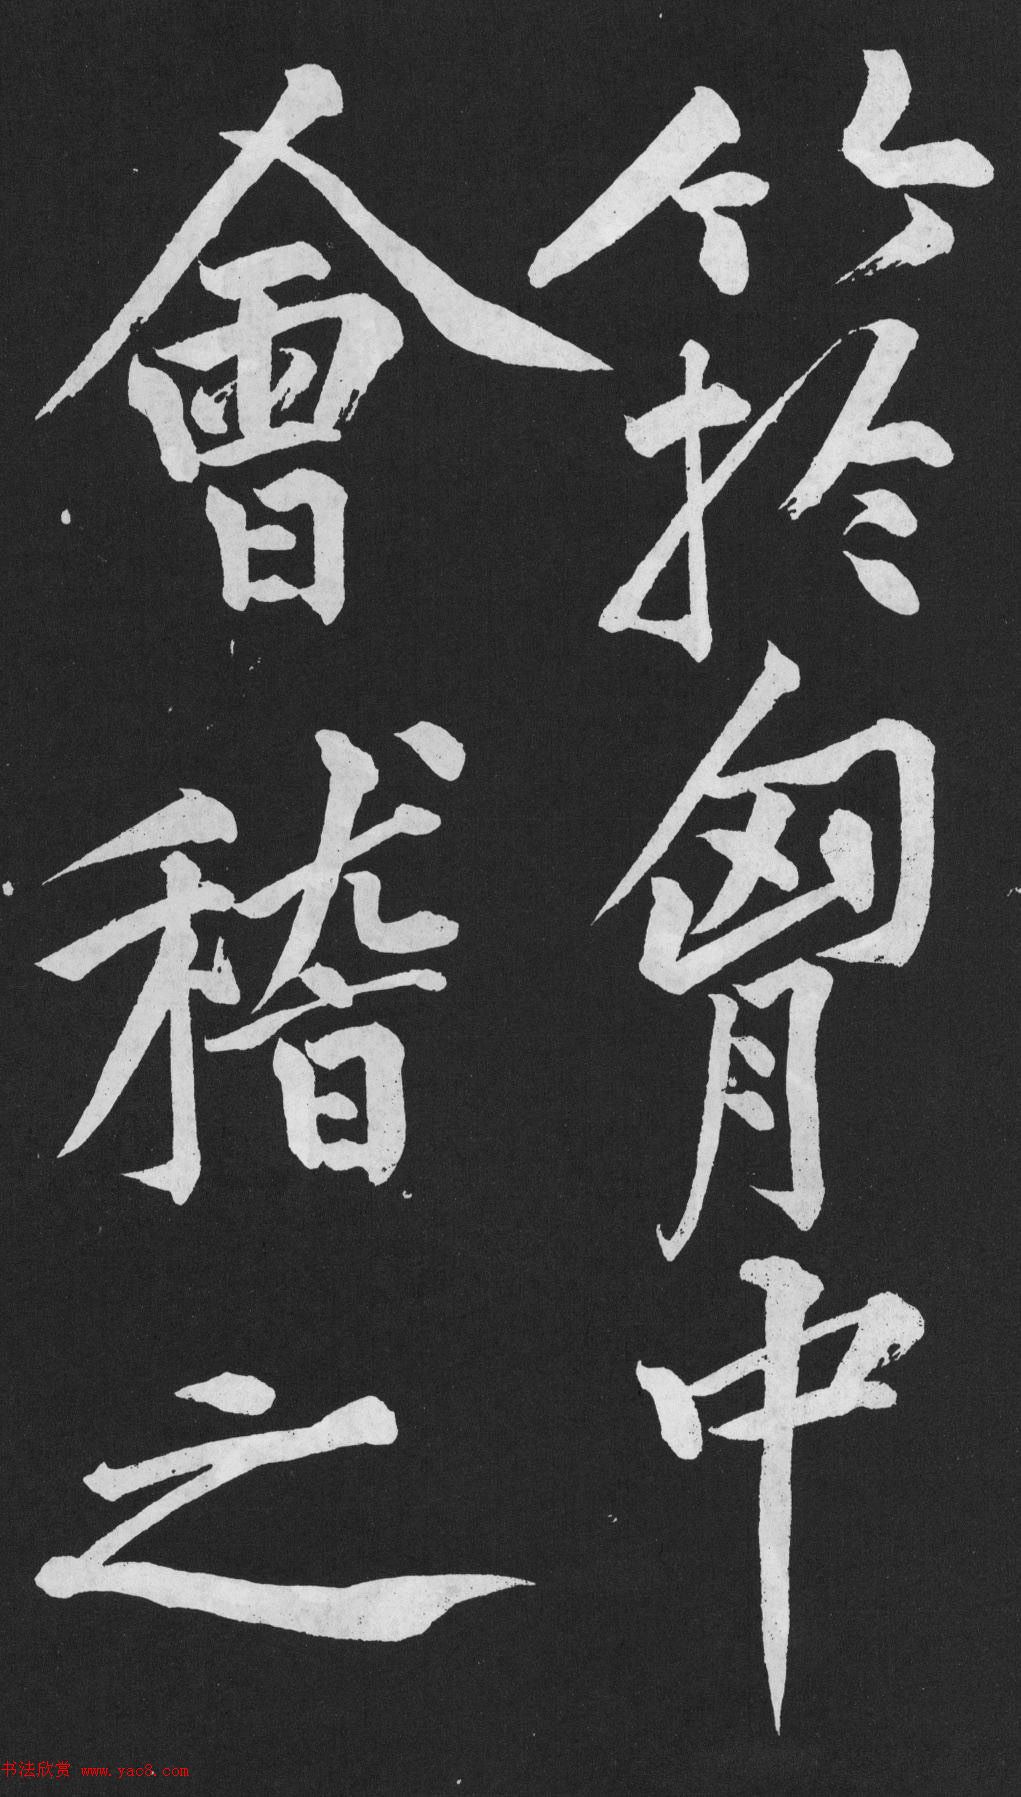 竹於胷中
會稽之
书法欣赏 www.yac8.com